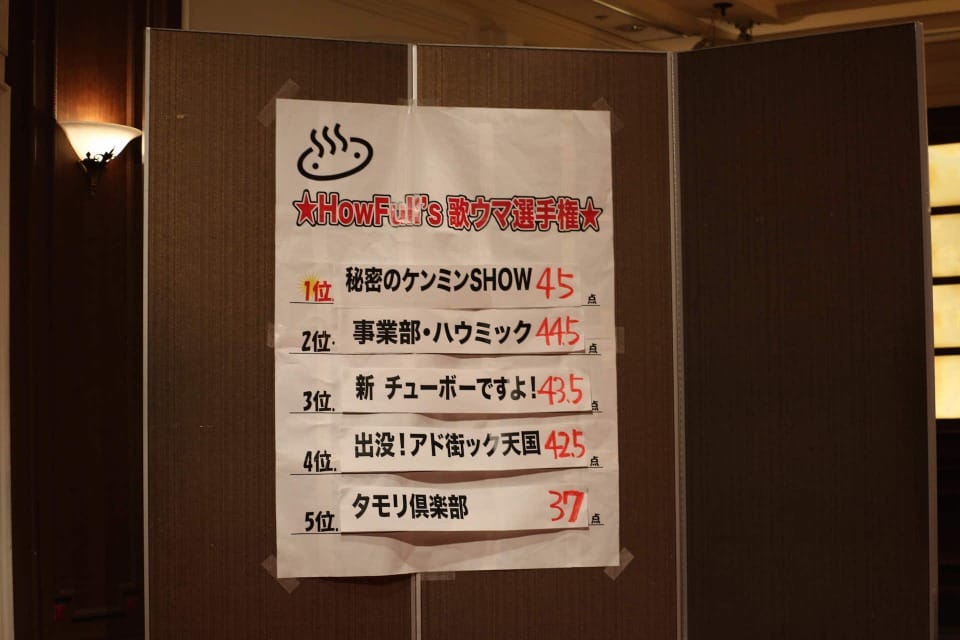 ★HowFull's 歌ウマ選手権★
1位. 秘密のケンミンSHOW 45点
2位. 事業部・ハウミック 44.5点
3位. 新 チューボーですよ! 43.5点
4位. 出没!アド街ック天国 42.5点
5位. タモリ倶楽部 37点